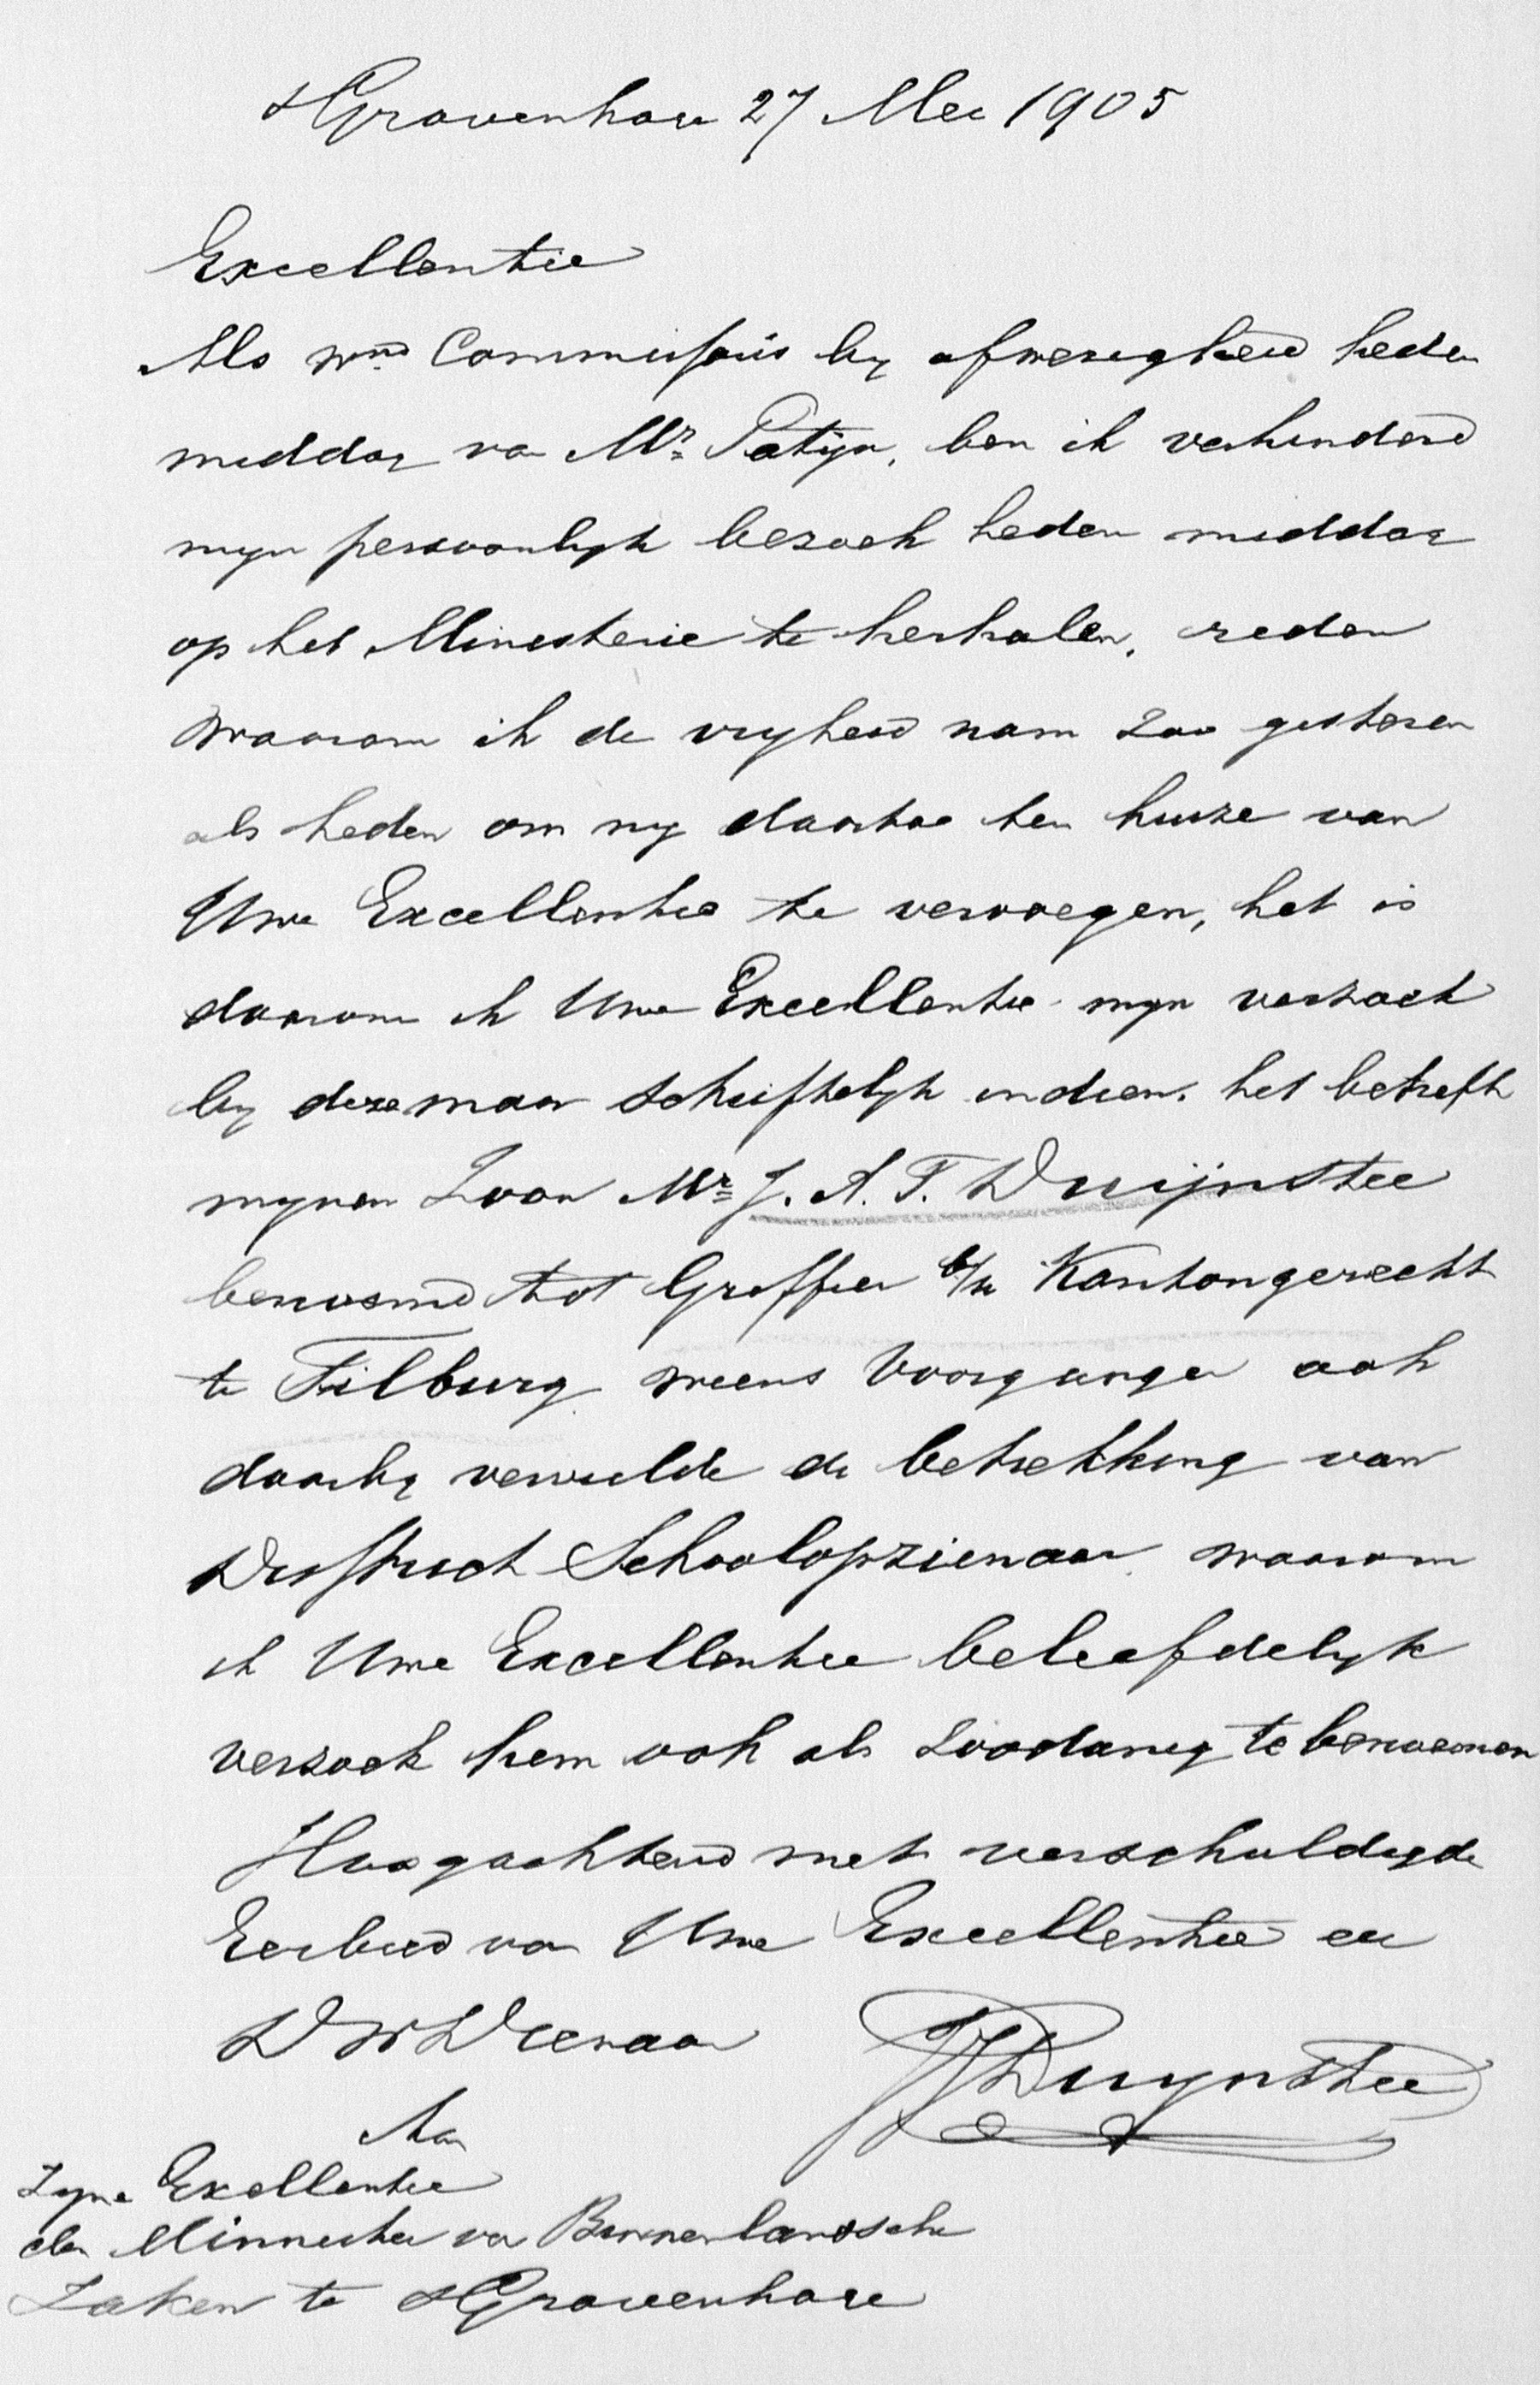 sGravenhage 27 Mei 1905
Excellentie
Als wnd Commissaris by afwezigheid heden
middag van Mr Patijn, ben ik verhinderd
myn persoonlyk bezoek heden middag
op het Ministerie te herhalen, reden
waarom ik de vryheid nam zoo gisteren
als heden om my daartoe ten huize van
Uwe Excellentie te vervoegen, het is
daarom ik Uwe Excellentie myn verzoek
by deze maar schriftelyk indien. het betreft
mynen Zoon Mr J. A. F. Duijnstee
benoemd tot Griffier b/h Kantongerecht
te Tilburg wiens Voorganger ook
daarby vervulde de betrekking van
District Schoolopziener waarom
ik Uwe Excellentie beleefdelyk
verzoek hem ook als zoodanig te benoemen
Hoogachtend met verschuldigde
Eerbied van Uwe Excellentie de
D W Dienaar
Duynstee
Aan
Zyne Exellentie
den Minnister van Binnenlandsche
Zaken te sGravenhage